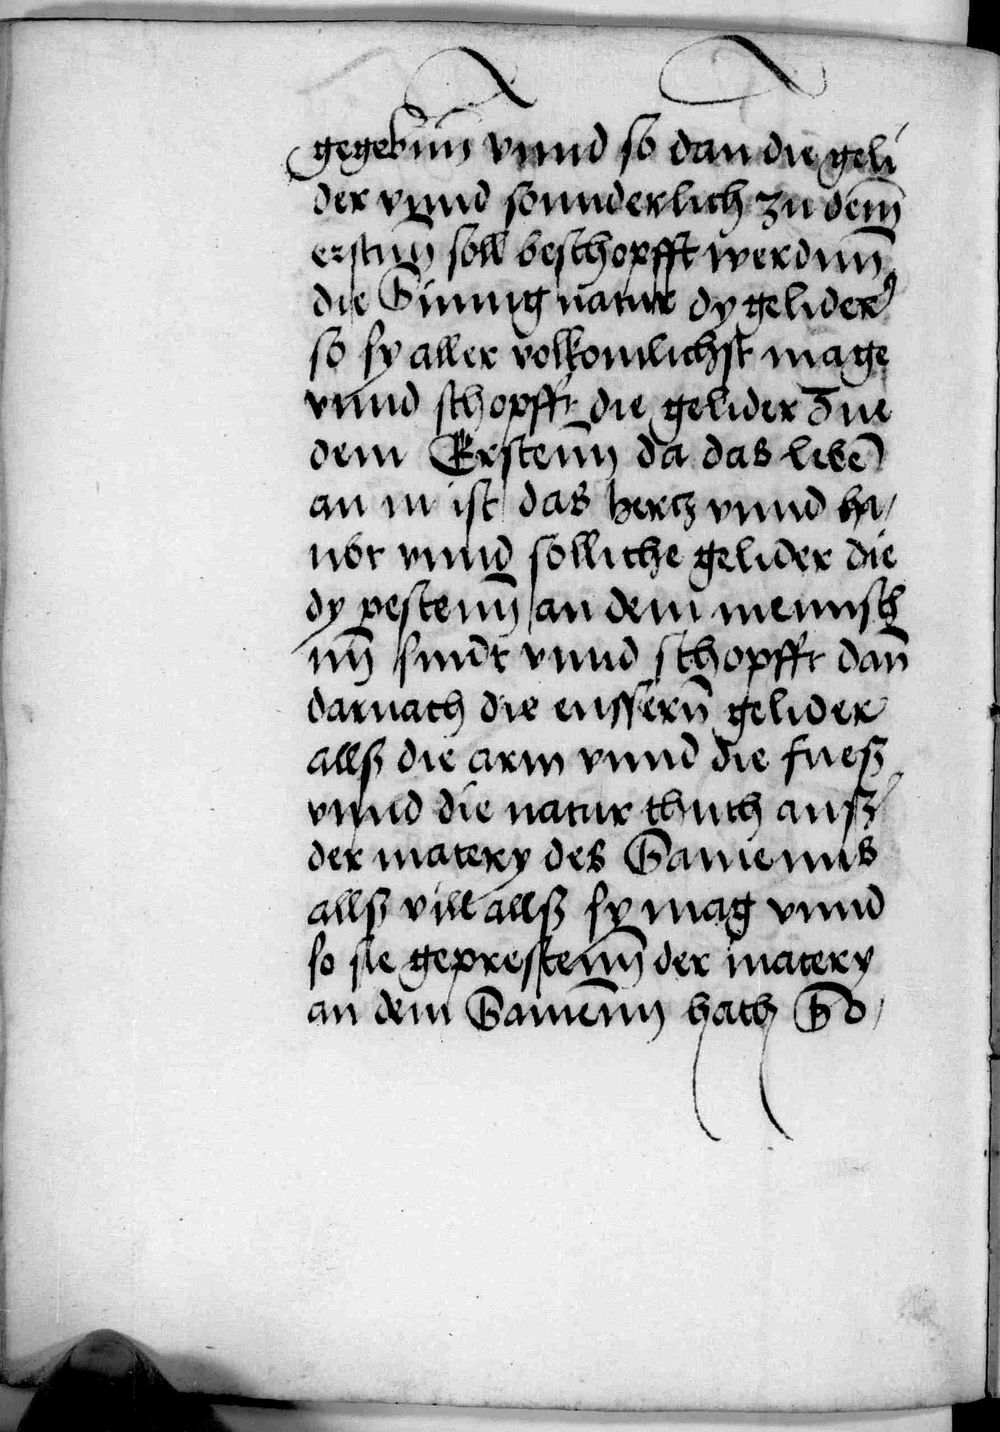 gegebnn vnnd so dan die geli
der vnnd sonnderlich zu dem̄
erstnn soll beschopfft werdnn
die Sinnig natur dy gelider
so sy aller volkomlichst mage
vnnd schopfft die gelider Zue
dem Erstenn da das lebē
an in ist das hercz vnnd ha/
nbt vnnd solliche gelider die
dy pestenn an dem mennsch
nn sindt vnnd schopfft dan̄
darnach die eussern̄ gelider
allß die arm vnnd die fueß
vnnd die natur thuth auß
der matery des Samenns
allß vill allß sy mag vnnd
so sie geprestenn der matery
an dem Samēnn hath So/